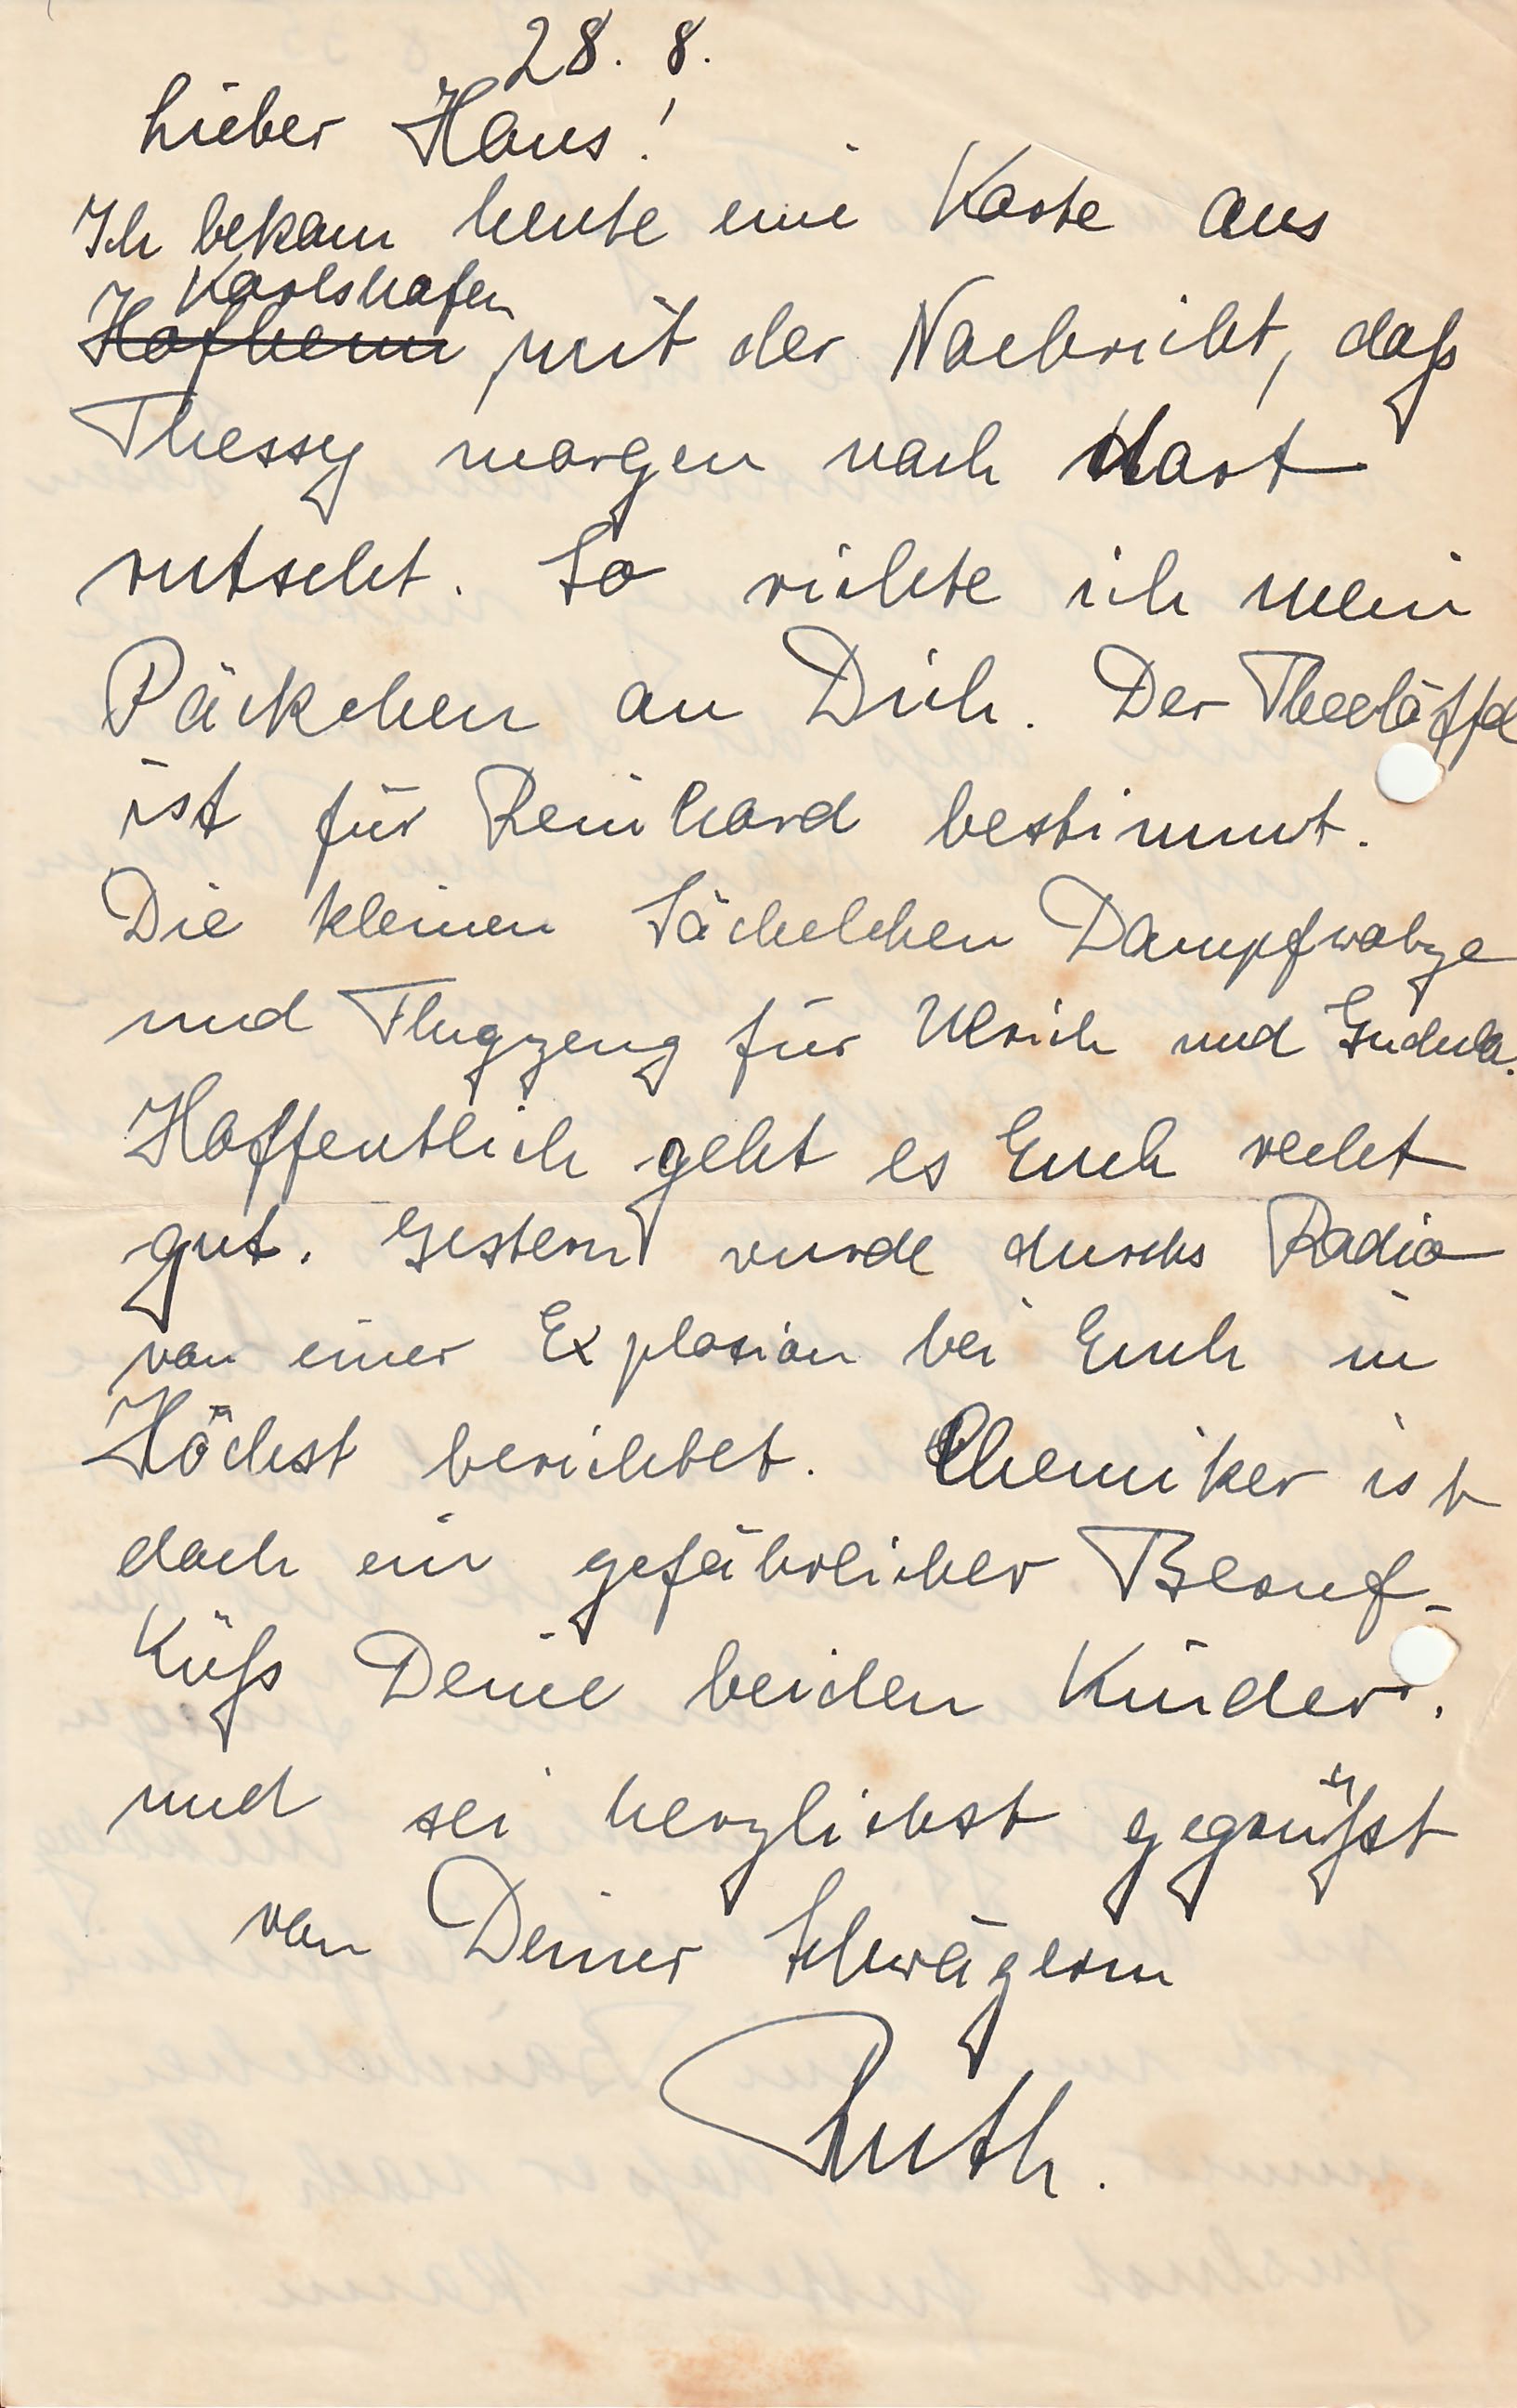 28. 8.
Lieber Hans!
Ich bekam heute eine Karte aus
Karlshafen
Hofheim, mit der Nachricht, daß
Thessy morgen nach Hart
rutscht. So richte ich mein
Päckchen an Dich. Der Theelöffel
ist für Reinhard bestimmt.
Die kleinen Sächelchen Dampfwalze
und Flugzeug für Ulrich und Gudula.
Hoffentlich geht es Euch recht
gut. Gestern wurde durchs Radio
von einer Explosion bei Euch in
Höchst berichtet. Chemiker ist
doch ein gefährlicher Beruf-
Küß Deine beiden Kinder.
und sei herzlichst gegrüßt
von Deiner Schwägerin
Ruth.